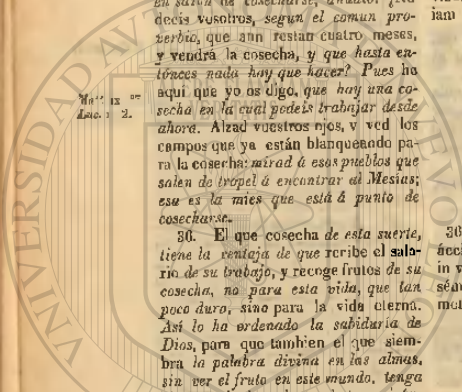 en sazon de cosecharse,
decis vosotros, segun el comun pro-
verbio, que aun restan cuatro meses,
y vendrá la cosecha, y que hasta en-
tónces nada hay que hacer? Pues he
aqui que yo os digo, que hay una co-
secha en la cual podeis trabajar desde
ahora. Alzad vuestros ojos, y ved los
campos que ya están blanqueando pa-
ra la cosecha: mirad á esos pueblos que
salen de tropel á encontrar al Mesías;
esa es la mies que está á punto de
cosecharse.
36. El que cosecha de esta suerte,
tiene la ventaja de que recibe el sala-
rio de su trabajo, y recoge frutos de su
cosecha, no para esta vida, que tan
poco duro, sino para la vida eterna.
Asi lo ha ordenado la sabiduría de
Dios, para que tambien el que siem-
bra la palabra divina en las almas,
sin ver el fruto en este mundo, tenga
Luc.
iam
36
in v
met